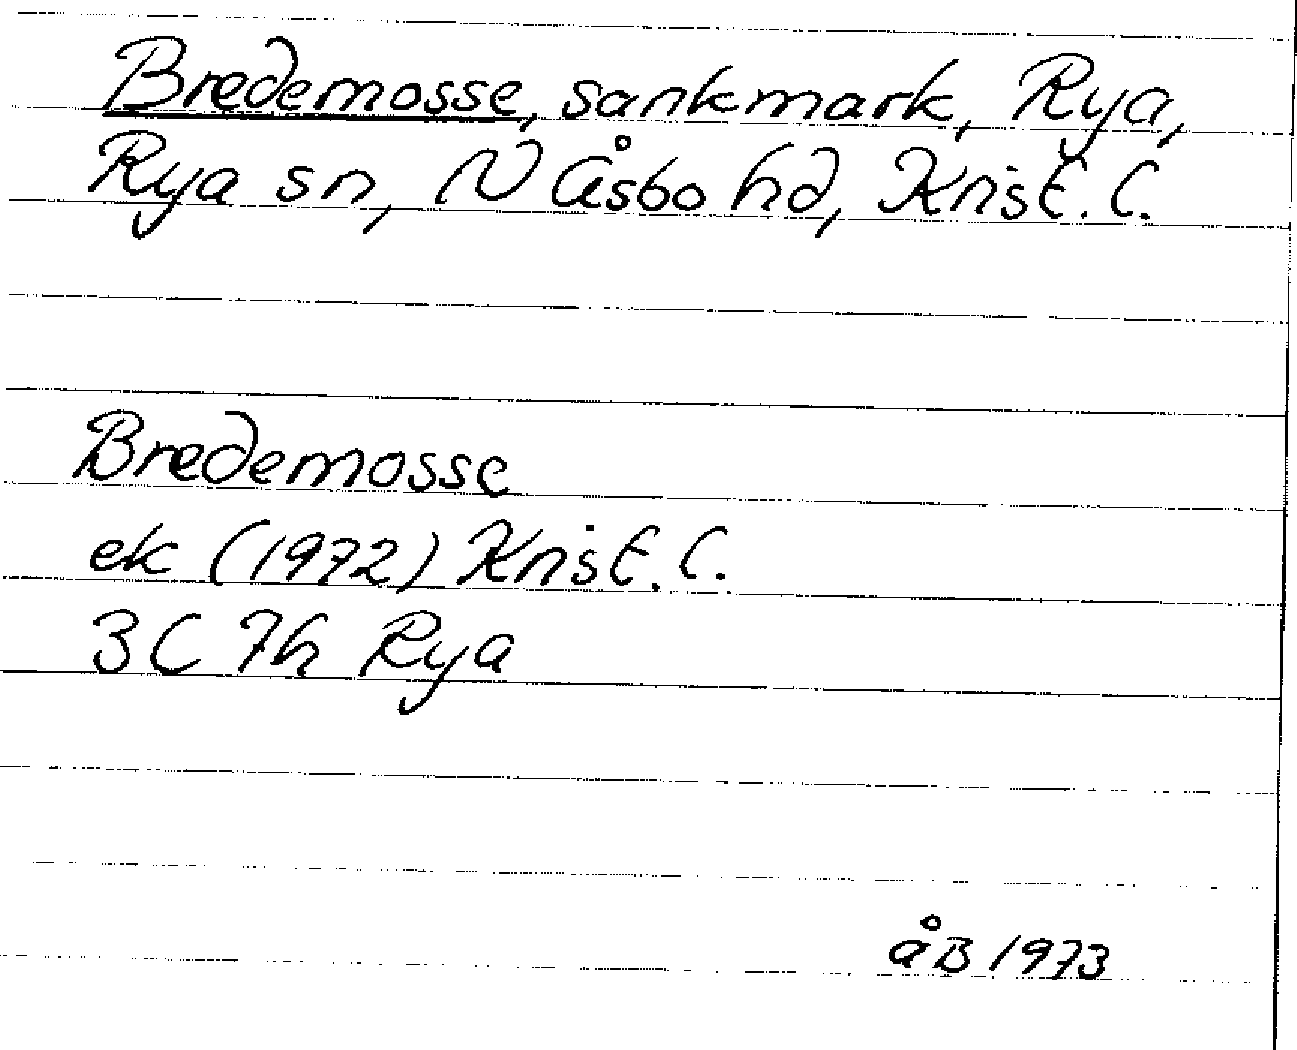 Bredemosse, sankmark, Rya,
Rya sn, N Åsbo hd, Krist. l.
Bredemosse
ek (1972) Krist. l.
3C 7h Rya
åB 1973